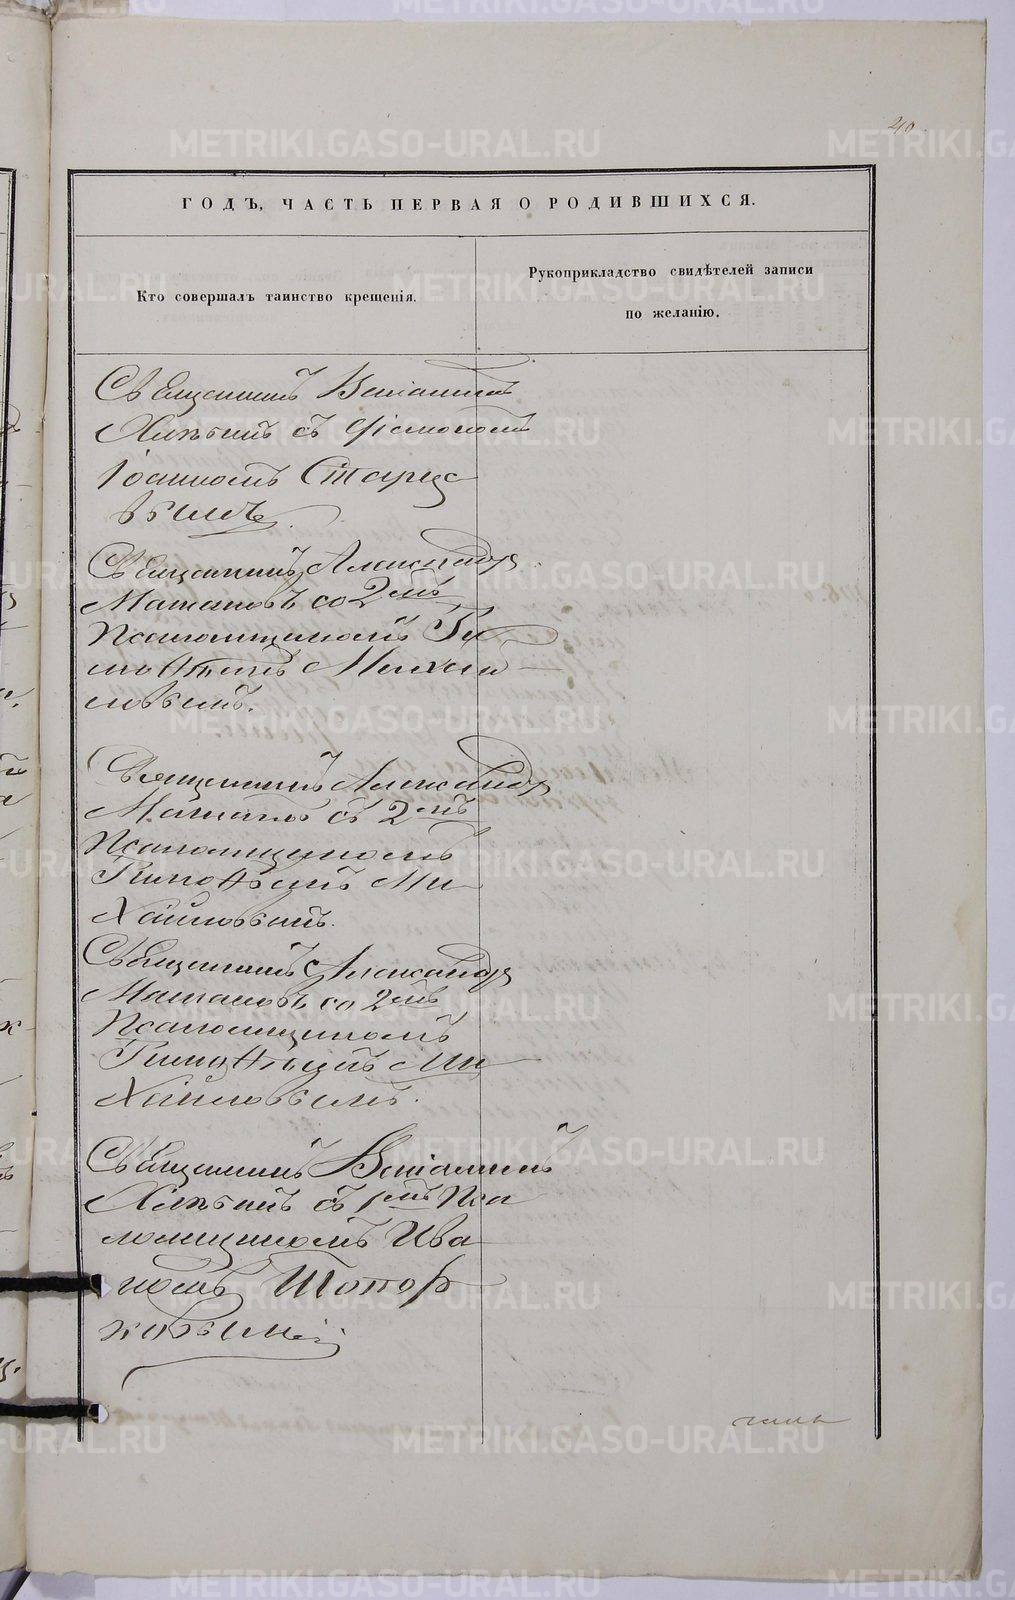 40
ГОДЪ, ЧАСТЬ ПЕРВАЯ О РОДИВШИХСЯ.
Кто совершалъ таинство крещенія.
Рукоприкладство свидѣтелей записи
по желанію.
Священникъ Веніаминъ
съ Діакономъ
Іоанномъ Старце
вымъ.
Священникъ Александръ
Матановъ со 2мъ
Псаломщикомъ Ти
моѳеемъ Михай
ловымъ.
Священникъ Александръ
съ 2мъ
Псаломщикомъ
Тимоѳѣемъ Ми
хайловымъ.
Священникъ Александръ
Матановъ со 2мъ
Псаломщикомъ
Тимоѳѣемъ Ми
хайловымъ.
Священникъ Веніаминъ
съ 1мъ Пса
ломщикомъ Ива
номъ Топор
ковымъ
METRIKI.GASO-URAL.RU